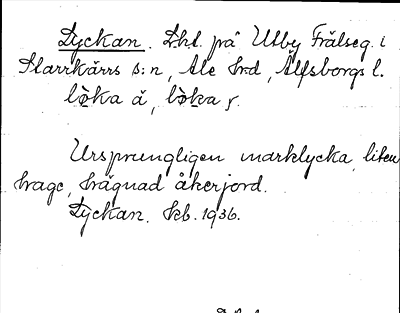 Lyckan. Lht. på Utby Frälseg. i
Starrkärrs s:n, Ale hrd, Älfsborgs l.
lo̊ka å, lo̊ka f.
Ursprungligen marklycka, liten
hage, hägnad åkerjord.
Lyckan. Kb. 1936.